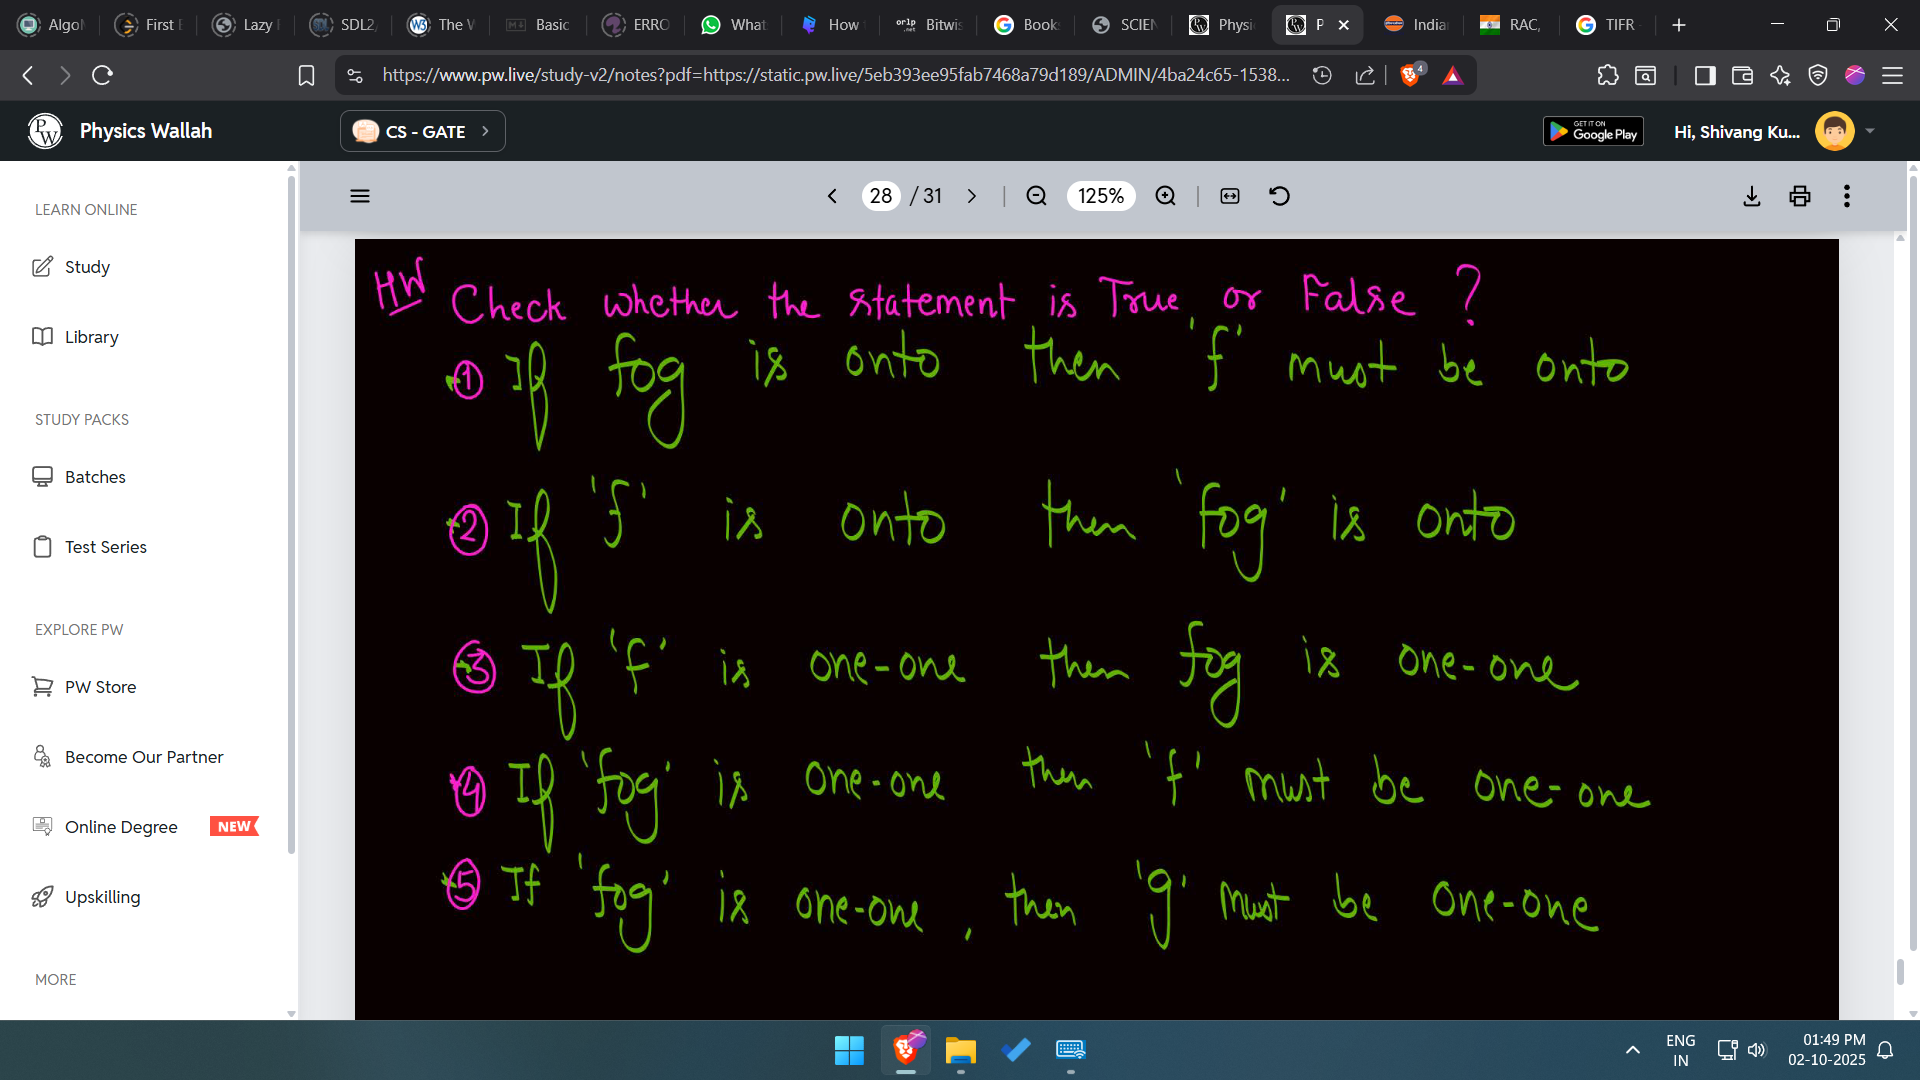 Algo
First
Lazy
SDL2
The W
Basic
ERRO
What
How
orlp .net
Bitwis
Book
SCIEN
Physi
P
India
RAC,
TIFR
https://www.pw.live/study-v2/notes?pdf=https://static.pw.live/5eb393ee95fab7468a79d189/ADMIN/4ba24c65-1538...
4
PW Physics Wallah
CS - GATE
GET IT ON Google Play
Hi, Shivang Ku...
28 / 31
125%
LEARN ONLINE
Study
Library
STUDY PACKS
Batches
Test Series
EXPLORE PW
PW Store
Become Our Partner
Online Degree NEW
Upskilling
MORE
HW Check whether the statement is True or False ?
① If fog is onto then 'f' must be onto
② If 'f' is onto then 'fog' is onto
③ If 'f' is one-one then fog is one-one
④ If 'fog' is one-one then 'f' must be one-one
⑤ If 'fog' is one-one, then 'g' must be one-one
ENG IN
01:49 PM
02-10-2025